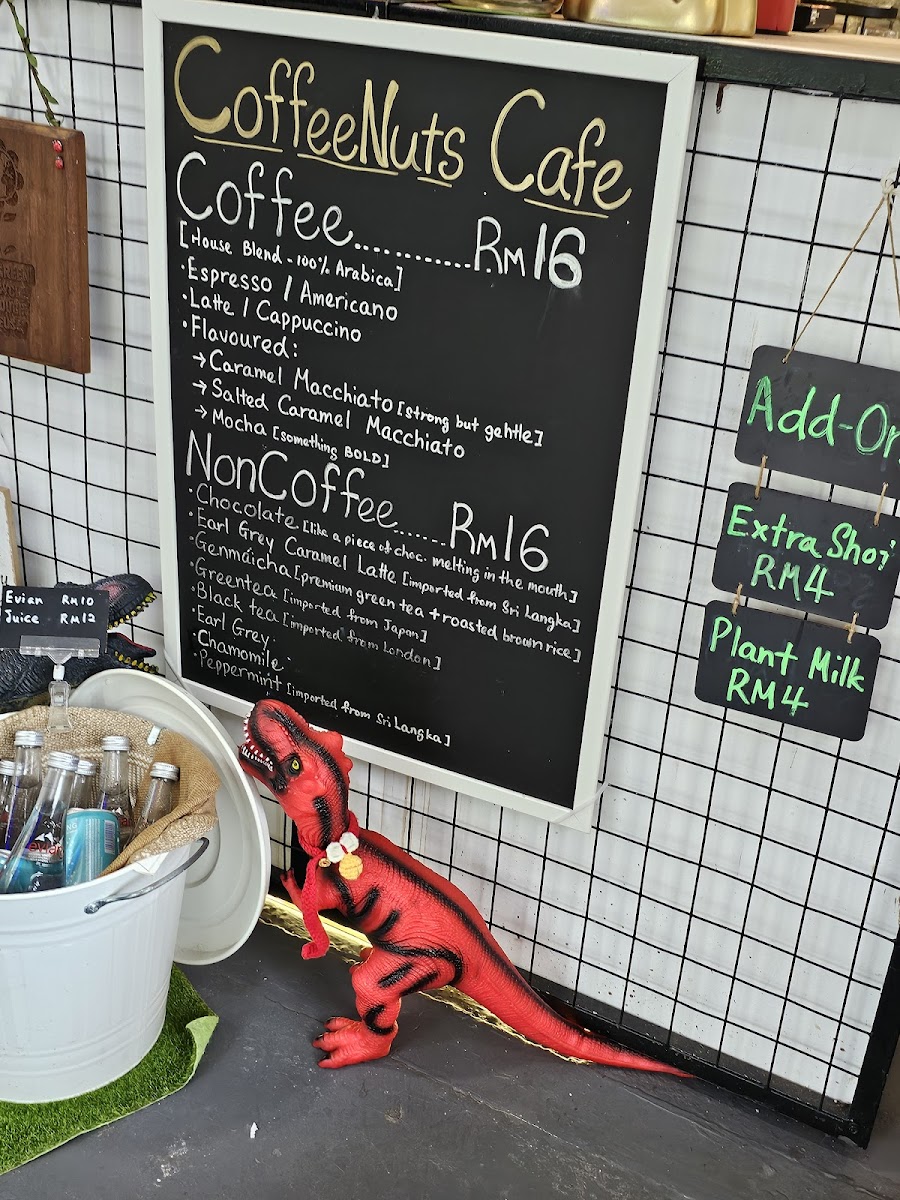 CoffeeNuts Cafe
Coffee............RM16
[House Blend - 100% Arabica]
·Espresso / Americano
·Latte / Cappuccino
·Flavoured:
→Caramel Macchiato [strong but gentle]
→Salted Caramel Macchiato
→Mocha [something BOLD]
NonCoffee......RM16
·Chocolate [like a piece of choc. melting in the mouth]
·Earl Grey Caramel Latte [imported from Sri Langka]
·Genmaicha [premium green tea + roasted brown rice]
·Greentea [imported from Japan]
·Black tea [imported from London]
·Earl Grey
·Chamomile
·Peppermint [imported from Sri Langka]
Add-On
Extra Shot
RM4
Plant Milk
RM4
Evian RM10
Juice RM12